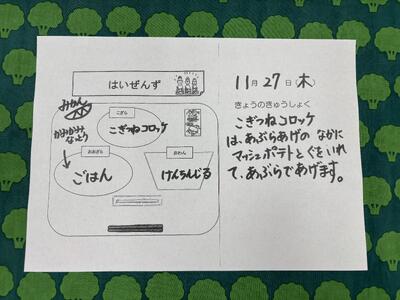 はいぜんず
みかん
かみかみ
なっとう
こざら
こぎつねコロッケ
おおざら
ごはん
おわん
けんちんじる
11月27日(木)
きょうのきゅうしょく
こぎつねコロッケ
は、あぶらあげの なかに
マッシュポテトとぐをいれ
て、あぶらであげます。